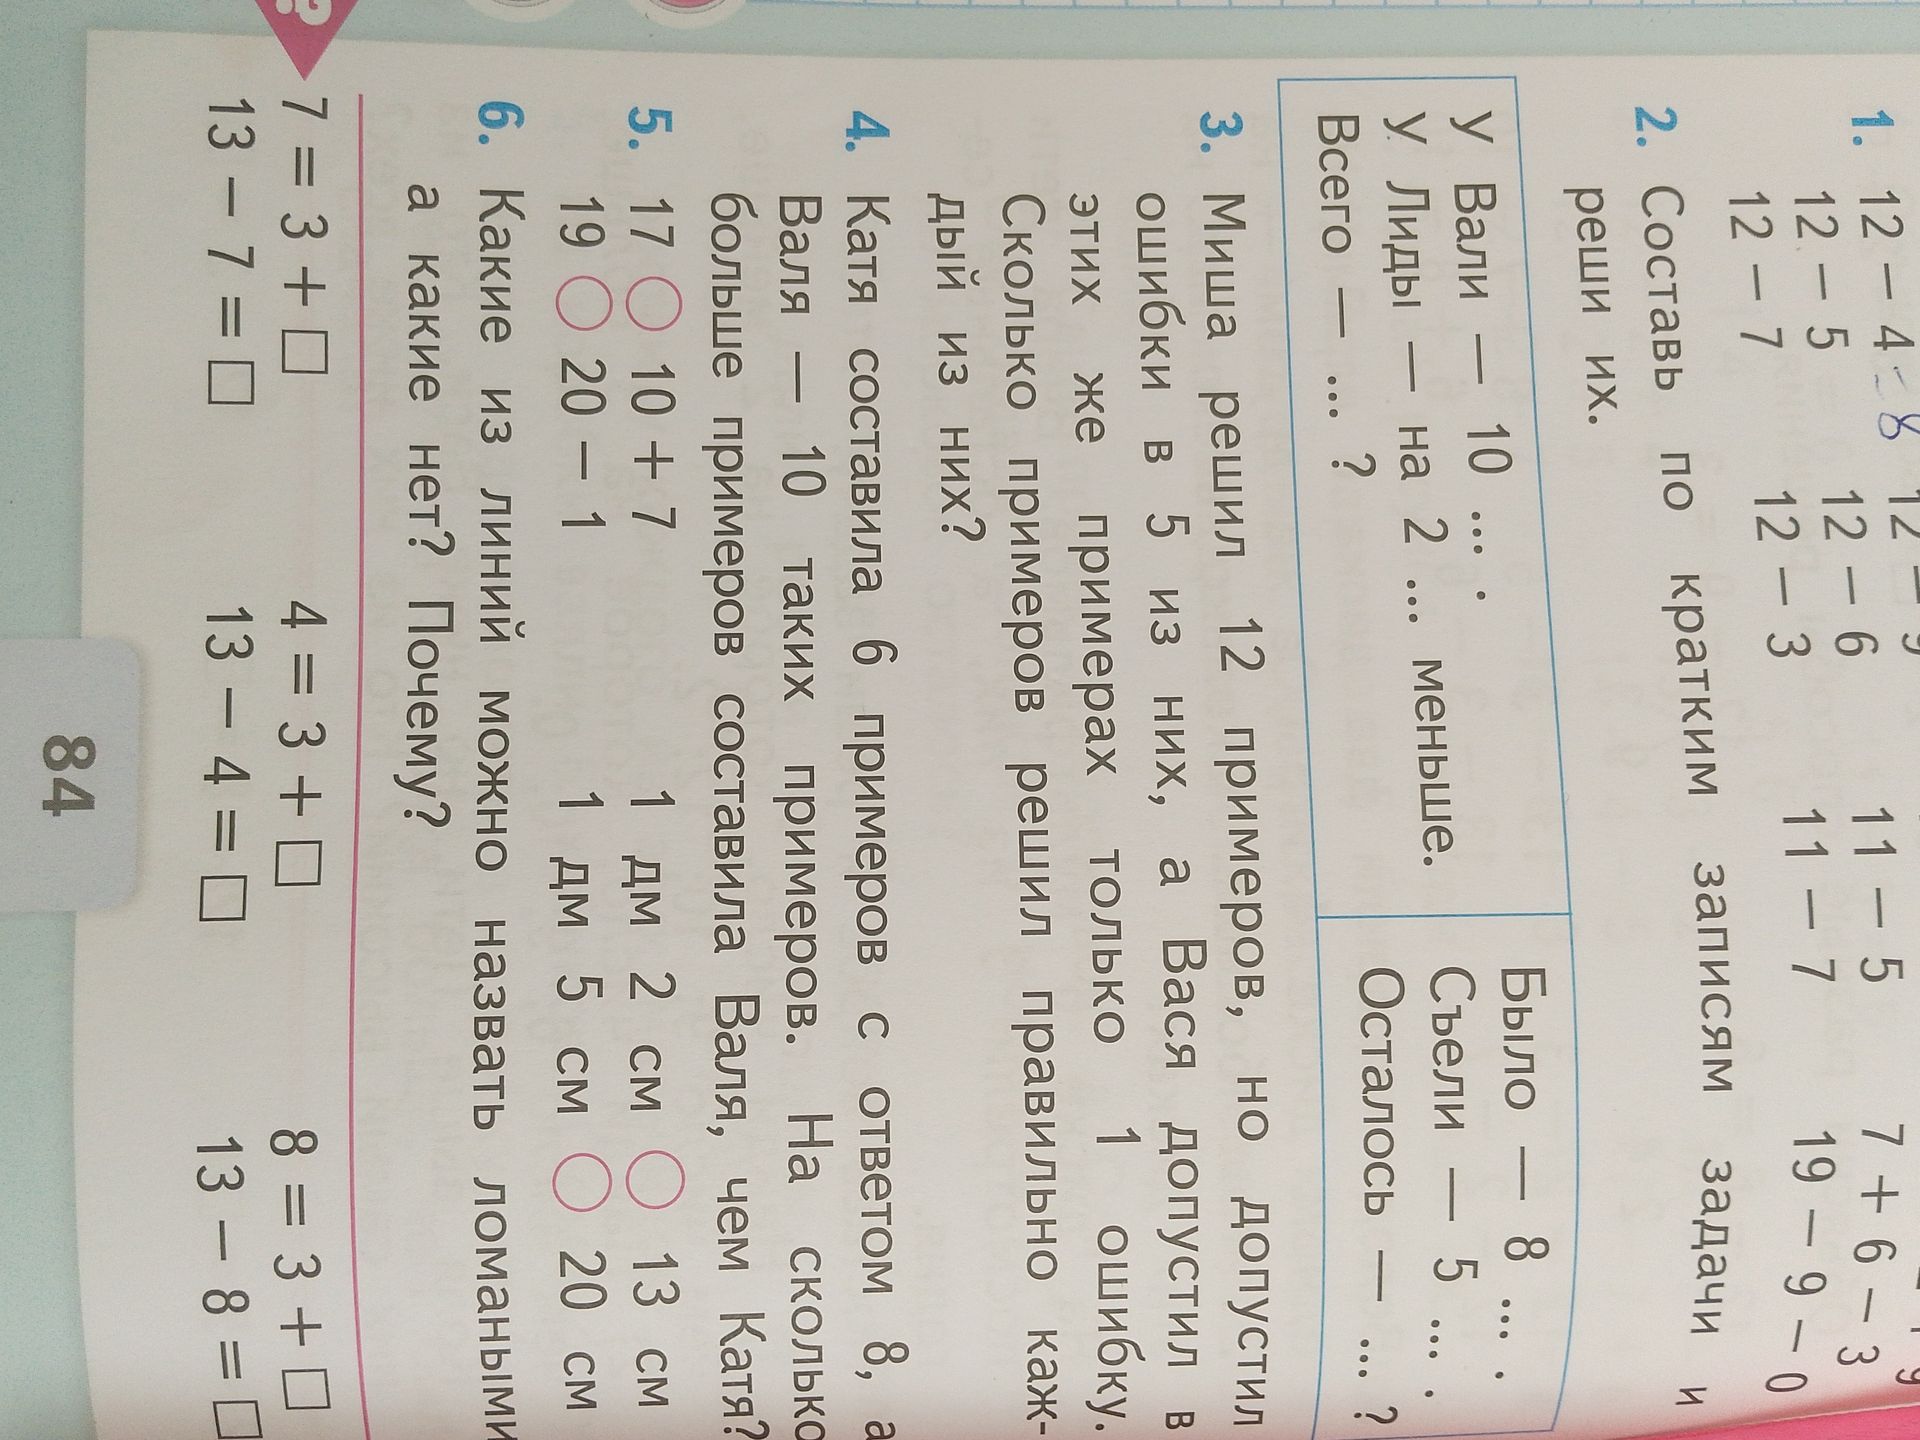 1. 12 – 4 = 8 12 – 9
12 – 5 12 – 6 11 – 5 7 + 6 – 3
12 – 7 12 – 3 11 – 7 19 – 9 – 0
2. Составь по кратким записям задачи и
реши их.
У Вали — 10 ... . Было — 8 ... .
У Лиды — на 2 ... меньше. Съели — 5 ... .
Всего — ... ? Осталось — ... ?
3. Миша решил 12 примеров, но допустил
ошибки в 5 из них, а Вася допустил в
этих же примерах только 1 ошибку.
Сколько примеров решил правильно каж-
дый из них?
4. Катя составила 6 примеров с ответом 8, а
Валя — 10 таких примеров. На сколько
больше примеров составила Валя, чем Катя?
5. 17 ○ 10 + 7 1 дм 2 см ○ 13 см
19 ○ 20 – 1 1 дм 5 см ○ 20 см
6. Какие из линий можно назвать ломаными,
а какие нет? Почему?
?
7 = 3 + □ 4 = 3 + □ 8 = 3 + □
13 – 7 = □ 13 – 4 = □ 13 – 8 = □
84